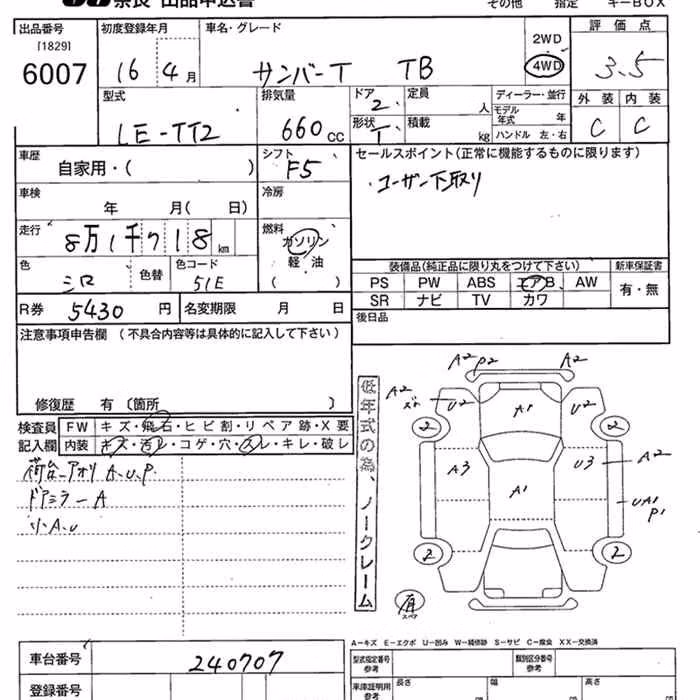 奈良 出品申込書 その他 指定 キーBOX
出品番号 初度登録年月 車名・グレード 2WD 評価点
[1829]
6007 16 4月 サンバーT TB 4WD 3.5
型式 排気量 ドア 定員 ディーラー・並行 外装 内装
2 人 モデル年式 年
LE-TT2 660cc 形状 T 積載 kg ハンドル 左・右 C C
車歴 シフト セールスポイント(正常に機能するものに限ります)
自家用・( ) F5 ユーザー下取り
車検 冷房
年 月( 日)
走行 燃料
8万1千718km ガソリン
色 色替 色コード 軽・油 装備品(純正品に限り丸をつけて下さい) 新車保証書
シロ 51E ( ) PS PW ABS エアB AW 有・無
R券 5430円 名変期限 月 日 SR ナビ TV カワ
注意事項申告欄 (不具合内容等は具体的に記入して下さい) 後日品
修復歴 有 〔箇所 〕
検査員 FW キズ・飛石・ヒビ割・リペア跡・X要
記入欄 内装 キズ・汚レ・コゲ・穴・スレ・キレ・破レ
荷台アオリ A.U.P.
ドアミラーA
小A.U
低年式の為、ノークレーム
A2 P2 A2
A2 U2 A1 U2
2 2
A3 U3 A2
A1 UA1
P1
2 2
有
スペア
A-キズ E-エクボ U-凹み W-補修跡 S-サビ C-腐食 XX-交換済
車台番号 240707 型式指定番号 参考 類別区分番号 参考
登録番号 車庫証明用 参考 長さ 幅 高さ